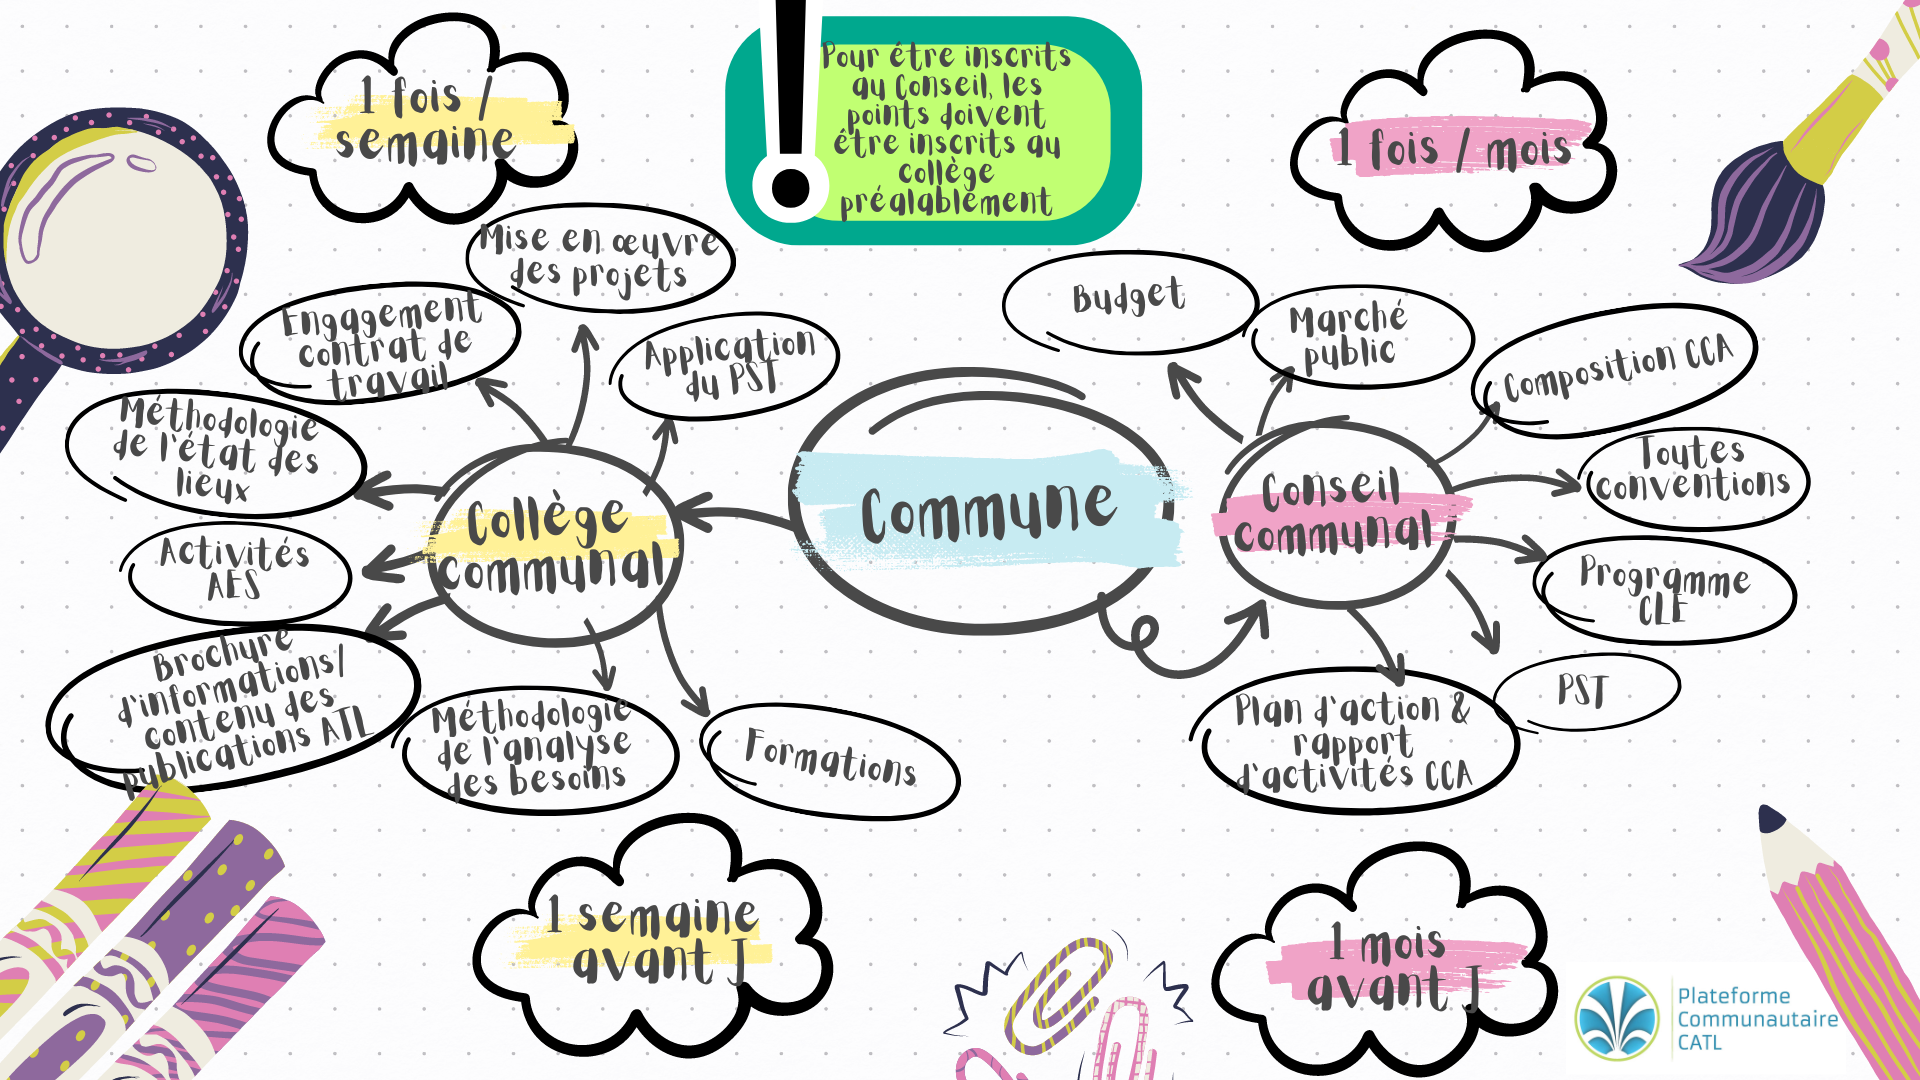 1 fois /
semaine
Pour être inscrits
au Conseil, les
points doivent
être inscrits au
collège
préalablement
1 fois / mois
Mise en œuvre
des projets
Engagement
contrat de
travail
Application
du PST
Méthodologie
de l'état des
lieux
Activités
AES
Brochure
d'informations/
contenu des
publications ATL
Méthodologie
de l'analyse
des besoins
Formations
Collège
communal
Commune
Conseil
communal
Budget
Marché
public
Composition CCA
Toutes
conventions
Programme
CLE
PST
Plan d'action &
rapport
d'activités CCA
1 semaine
avant J
1 mois
avant J
Plateforme
Communautaire
CATL